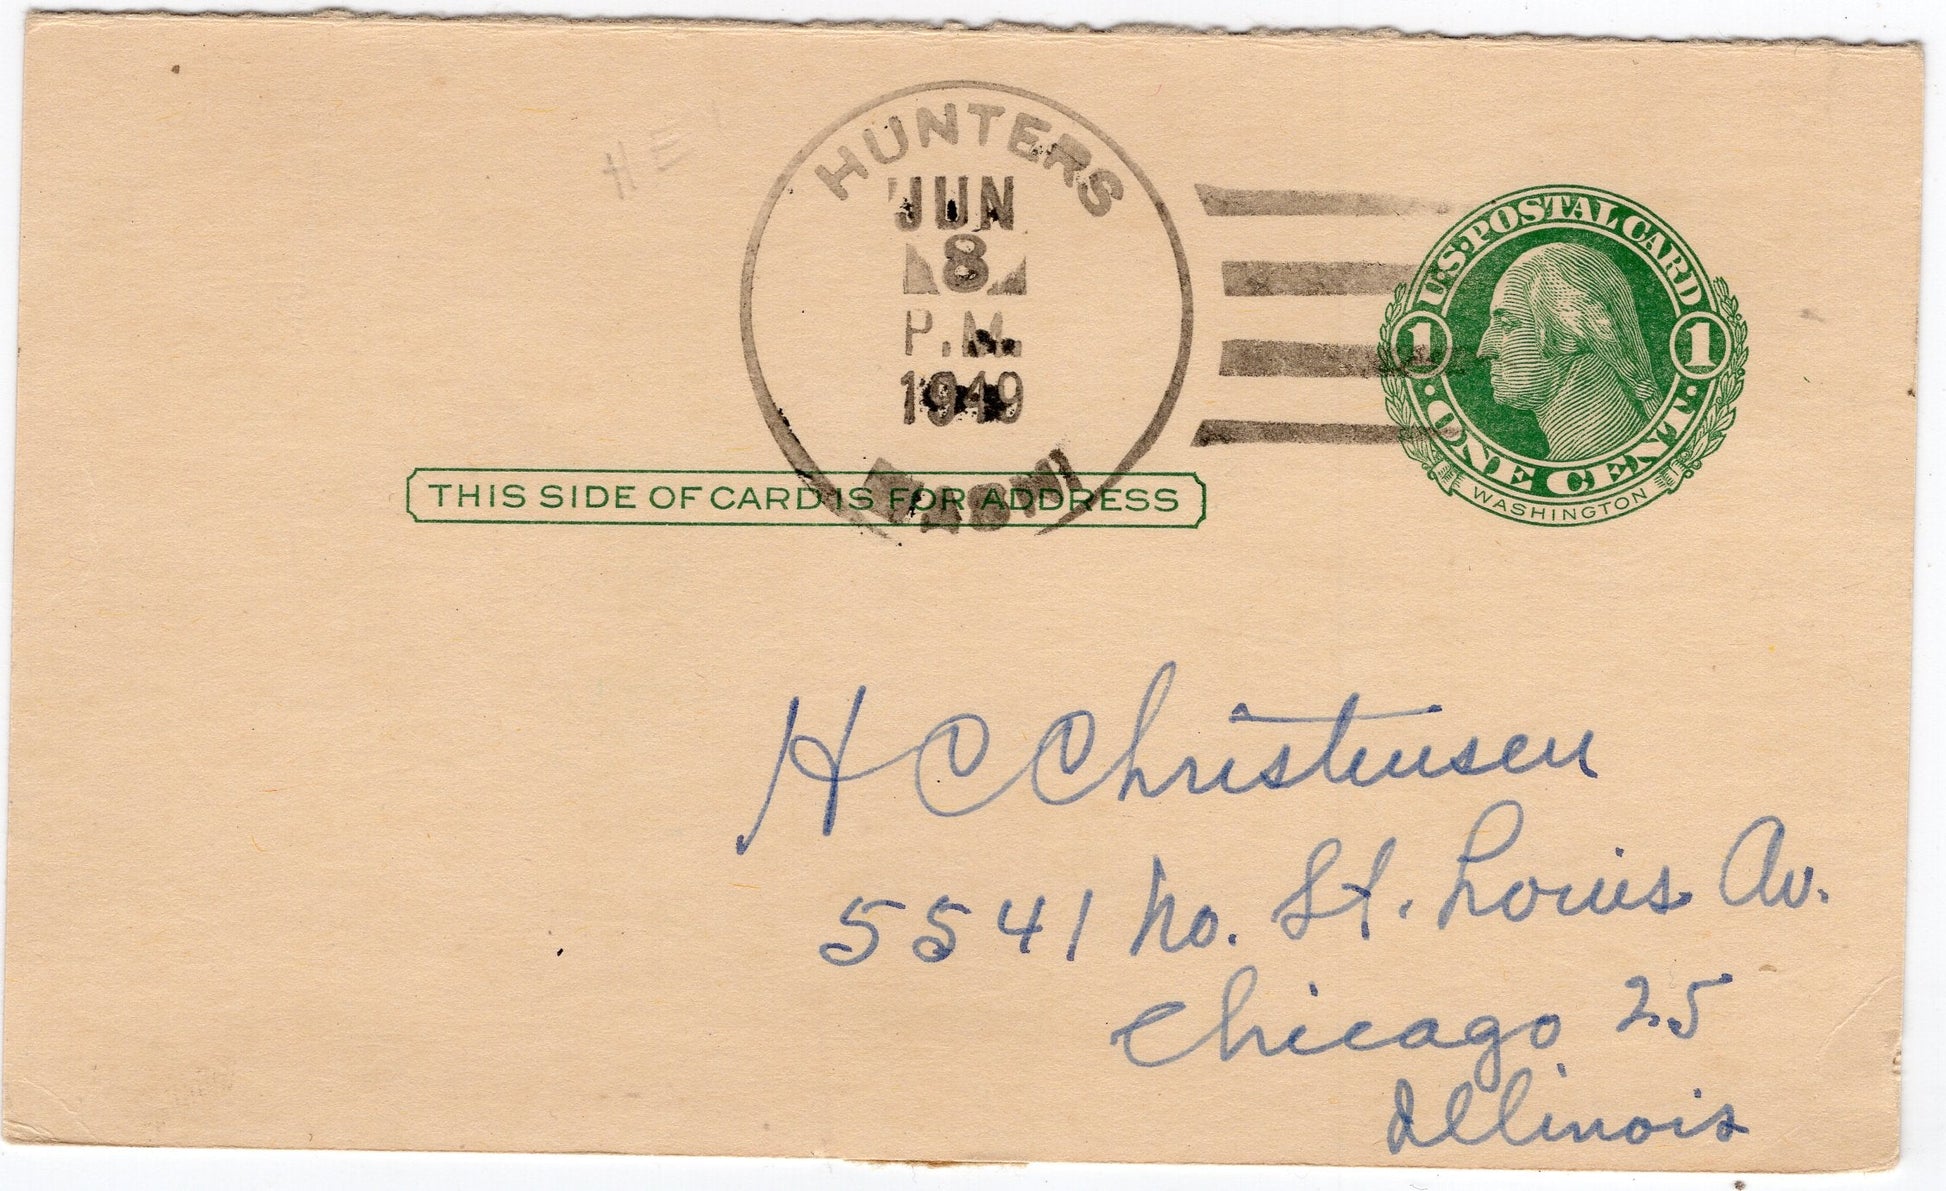 HE
HUNTERS
JUN
8
P.M.
1949
WASH.
U.S. POSTAL CARD
1 1
· ONE CENT ·
WASHINGTON
THIS SIDE OF CARD IS FOR ADDRESS
H C Christensen
5541 No. St. Louis Av.
Chicago 25
Illinois